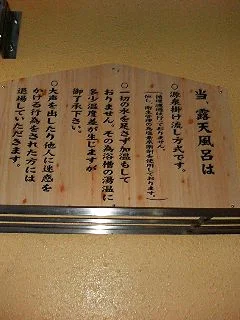 当、露天風呂は
○源泉掛け流し方式です。
循環濾過は行っておりません。
但し、衛生管理の為塩素系薬剤を使用しております。
○一切の水を足さず加温もして
おりません。その為浴槽の湯温に
多少温度差が生じますが
御了承下さい。
○大声を出したり他人に迷惑を
かける行為をされた方には
退場していただきます。